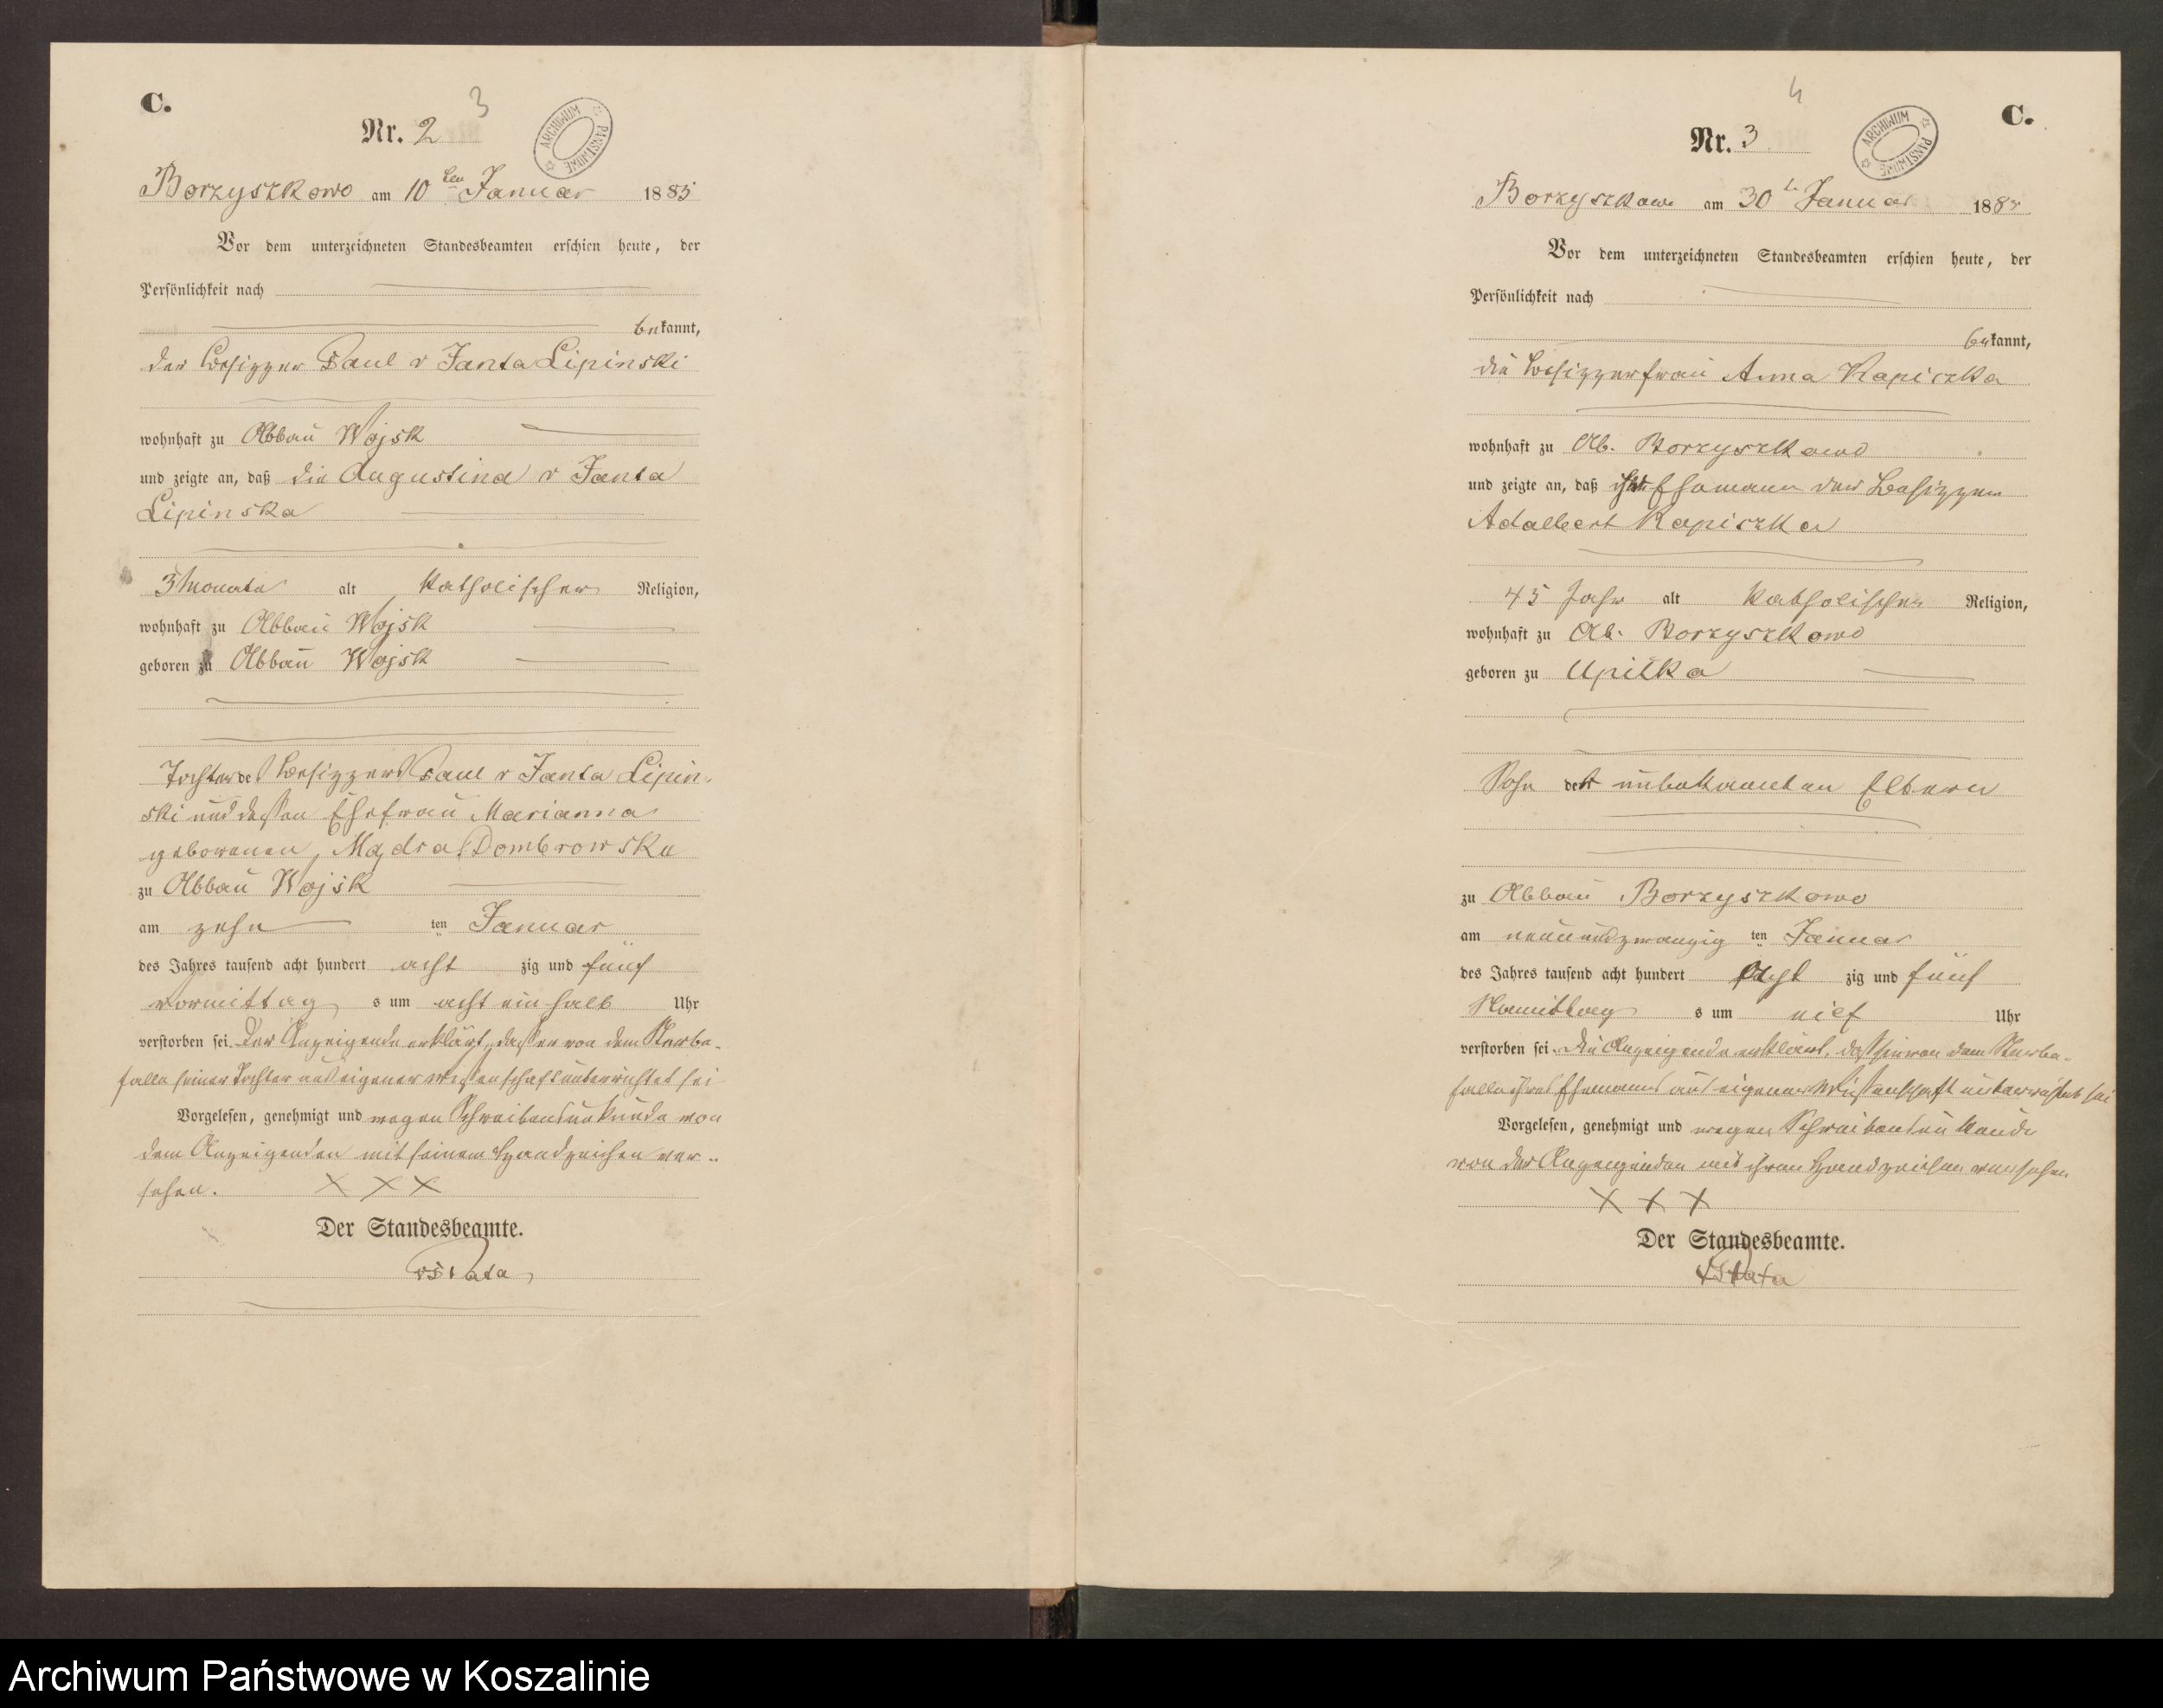 C.
3
Nr. 2
ARCHIWUM PAŃSTWOWE
Borzyszkowo am 10ten Januar 1885
Vor dem unterzeichneten Standesbeamten erschien heute, der
Persönlichkeit nach
bekannt,
der Besitzer Paul v Janta Lipinski
wohnhaft zu Abbau Wojsk
und zeigte an, daß die Augustina v Janta
Lipinska
3 Monate alt katholischer Religion,
wohnhaft zu Abbau Wojsk
geboren zu Abbau Wojsk
Tochter des Besitzers Paul v Janta Lipin-
ski und dessen Ehefrau Marianna
geborenen, Dombrowska
zu Abbau Wojsk
am zehn ten Januar
des Jahres tausend acht hundert acht zig und fünf
vormittag s um acht ein halb Uhr
verstorben sei. Der Anzeigende erklärt, dass er von dem Sterbe-
falle seiner Tochter aus eigener Wissenschaft unterrichtet sei
Vorgelesen, genehmigt und wegen Schreibensunkunde von
dem Anzeigenden mit seinem Handzeichen ver-
sehen. X X X
Der Standesbeamte.
4
C.
Nr. 3
ARCHIWUM PAŃSTWOWE
Borzyszkowo am 30t Januar 1885
Vor dem unterzeichneten Standesbeamten erschien heute, der
Persönlichkeit nach
bekannt,
die Besitzerfrau Anna Kapiczka
wohnhaft zu Ab. Borzyszkowo
und zeigte an, daß ihr Ehemann der Besitzer
Adalbert Kapiczka
45 Jahr alt katholischer Religion,
wohnhaft zu Ab. Borzyszkowo
geboren zu Upilka
Sohn der unbekannten Eltern
zu Abbau Borzyszkowo
am neunundzwanzig ten Januar
des Jahres tausend acht hundert acht zig und fünf
s um Uhr
verstorben sei. Die Anzeigende erklärt, daß sie von dem Sterbe-
falle ihres Ehemanns aus eigener Wissenschaft unterrichtet sei
Vorgelesen, genehmigt und wegen Schreibensunkunde
von der Anzeigenden mit ihren Handzeichen versehen
X X X
Der Standesbeamte.
Archiwum Państwowe w Koszalinie